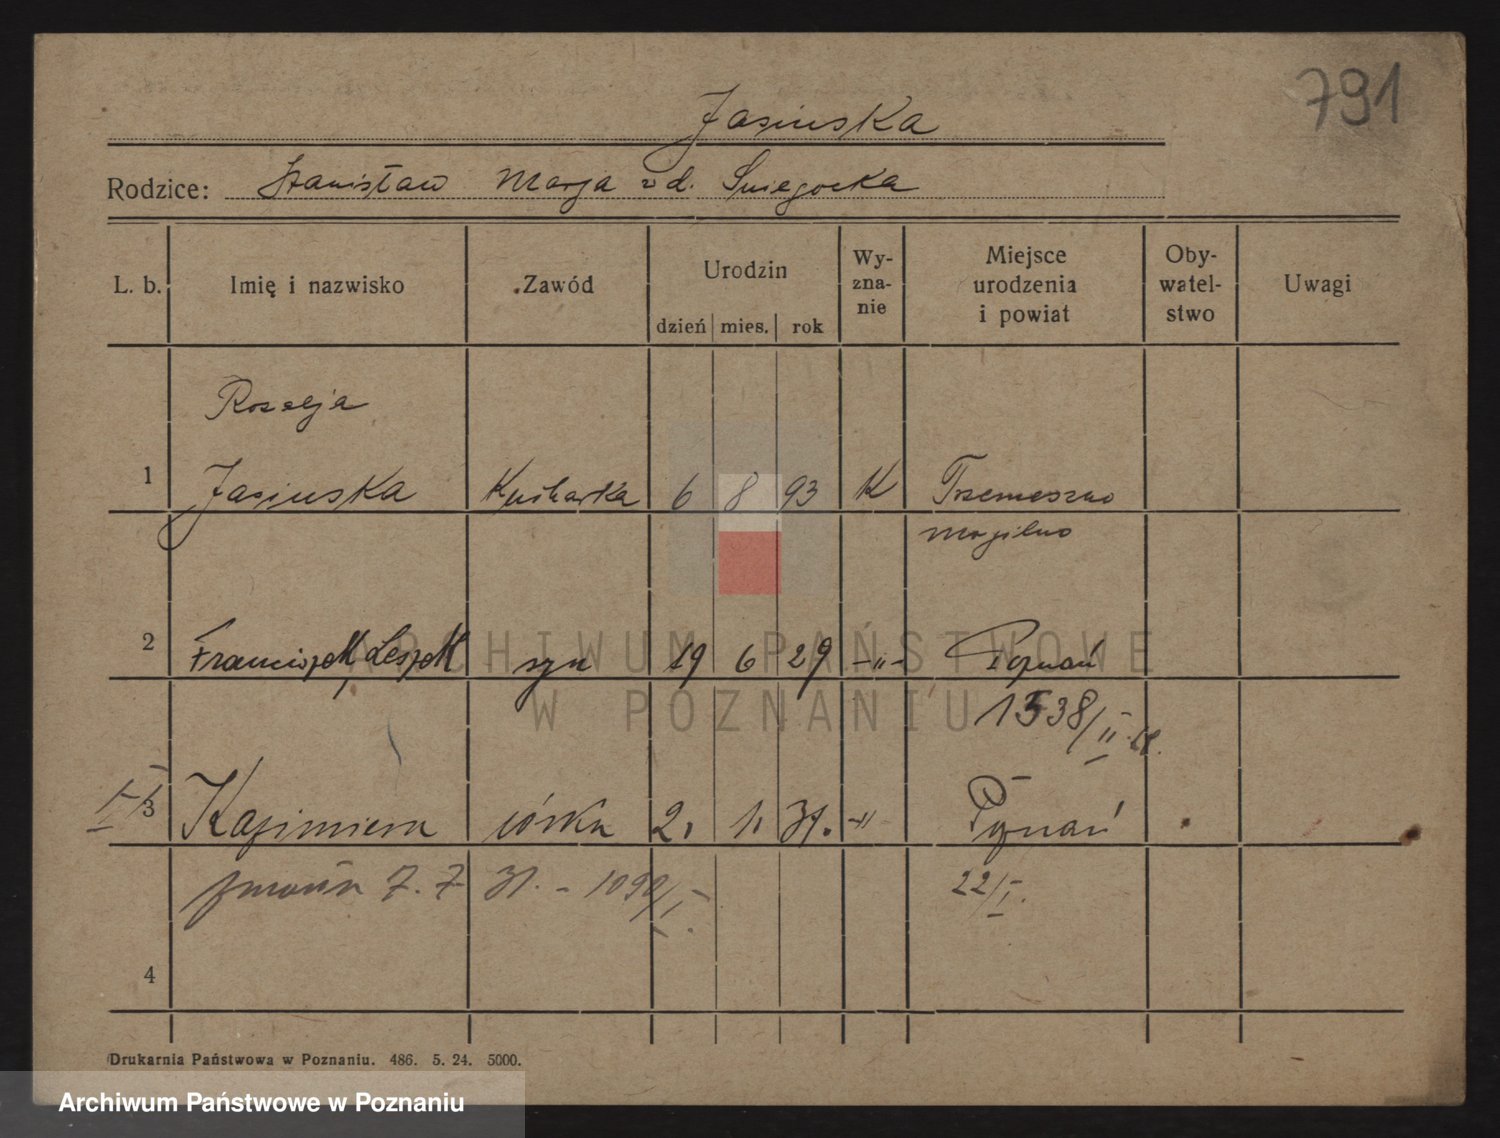 791
Jasinska
Rodzice: Stanisław Marja z d. Sniegocka
L. b. Imię i nazwisko Zawód Urodzin dzień mies. rok Wy-zna-nie Miejsce urodzenia i powiat Oby-watel-stwo Uwagi
Rozalja
1 Jasinska Kucharka 6 8 93 K Trzemeszno
Mogilno
2 Franciszek, Leszek syn 19 6 29 -"- Poznań
1538/II.
3 Kazimiera córka 2. 1. 31. -"- Poznań
zmarła 7. 7 31. - 1090/I. 22/I.
4
Drukarnia Państwowa w Poznaniu. 486. 5. 24. 5000.
ARCHIWUM PAŃSTWOWE
W POZNANIU
Archiwum Państwowe w Poznaniu